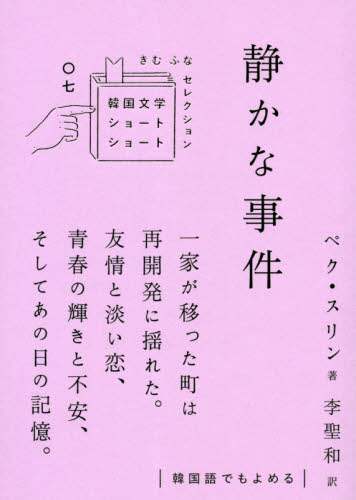 静かな事件
きむ ふな
セレクション
〇七
韓国文学
ショート
ショート
ペク・スリン 著
李聖和 訳
一家が移った町は
再開発に揺れた。
友情と淡い恋、
青春の輝きと不安、
そしてあの日の記憶。
韓国語でもよめる